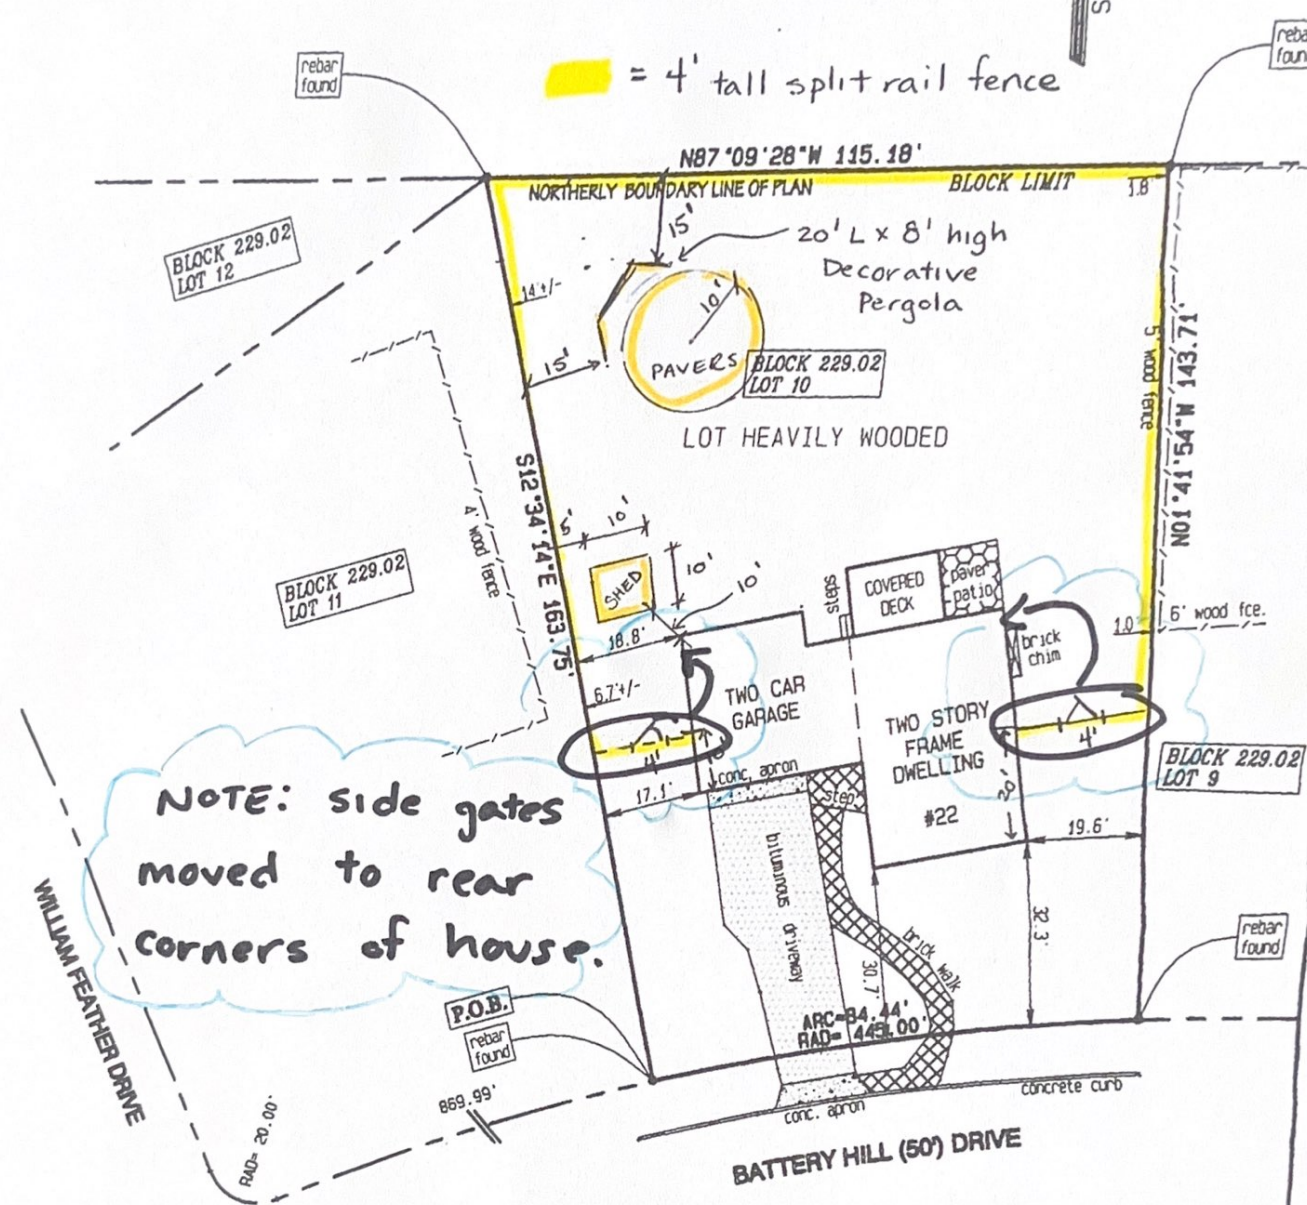 S
rebar
found
= 4' tall split rail fence
N87°09'28"W 115.18'
NORTHERLY BOUNDARY LINE OF PLAN
BLOCK LIMIT
1.8'
15'
20' L x 8' high
Decorative
Pergola
BLOCK 229.02
LOT 12
14'+/-
10'
PAVERS
15'
BLOCK 229.02
LOT 10
5' wood fence
N01°41'54"W 143.71'
LOT HEAVILY WOODED
S12°34'14"E 163.75'
4' wood fence
5'
10'
10'
10'
SHED
BLOCK 229.02
LOT 11
steps
COVERED
DECK
paver
patio
1.0'
6' wood fce.
18.8'
brick
chim
6.7'+/-
TWO CAR
GARAGE
TWO STORY
FRAME
DWELLING
#22
4'
4'
conc. apron
step
20'
BLOCK 229.02
LOT 9
17.1'
19.6'
NOTE: side gates
moved to rear
corners of house.
bituminous driveway
brick walk
32.3'
30.7'
rebar
found
WILLIAM FEATHER DRIVE
P.O.B.
rebar
found
ARC=84.44'
869.99'
RAD= 20.00'
conc. apron
concrete curb
BATTERY HILL (50') DRIVE